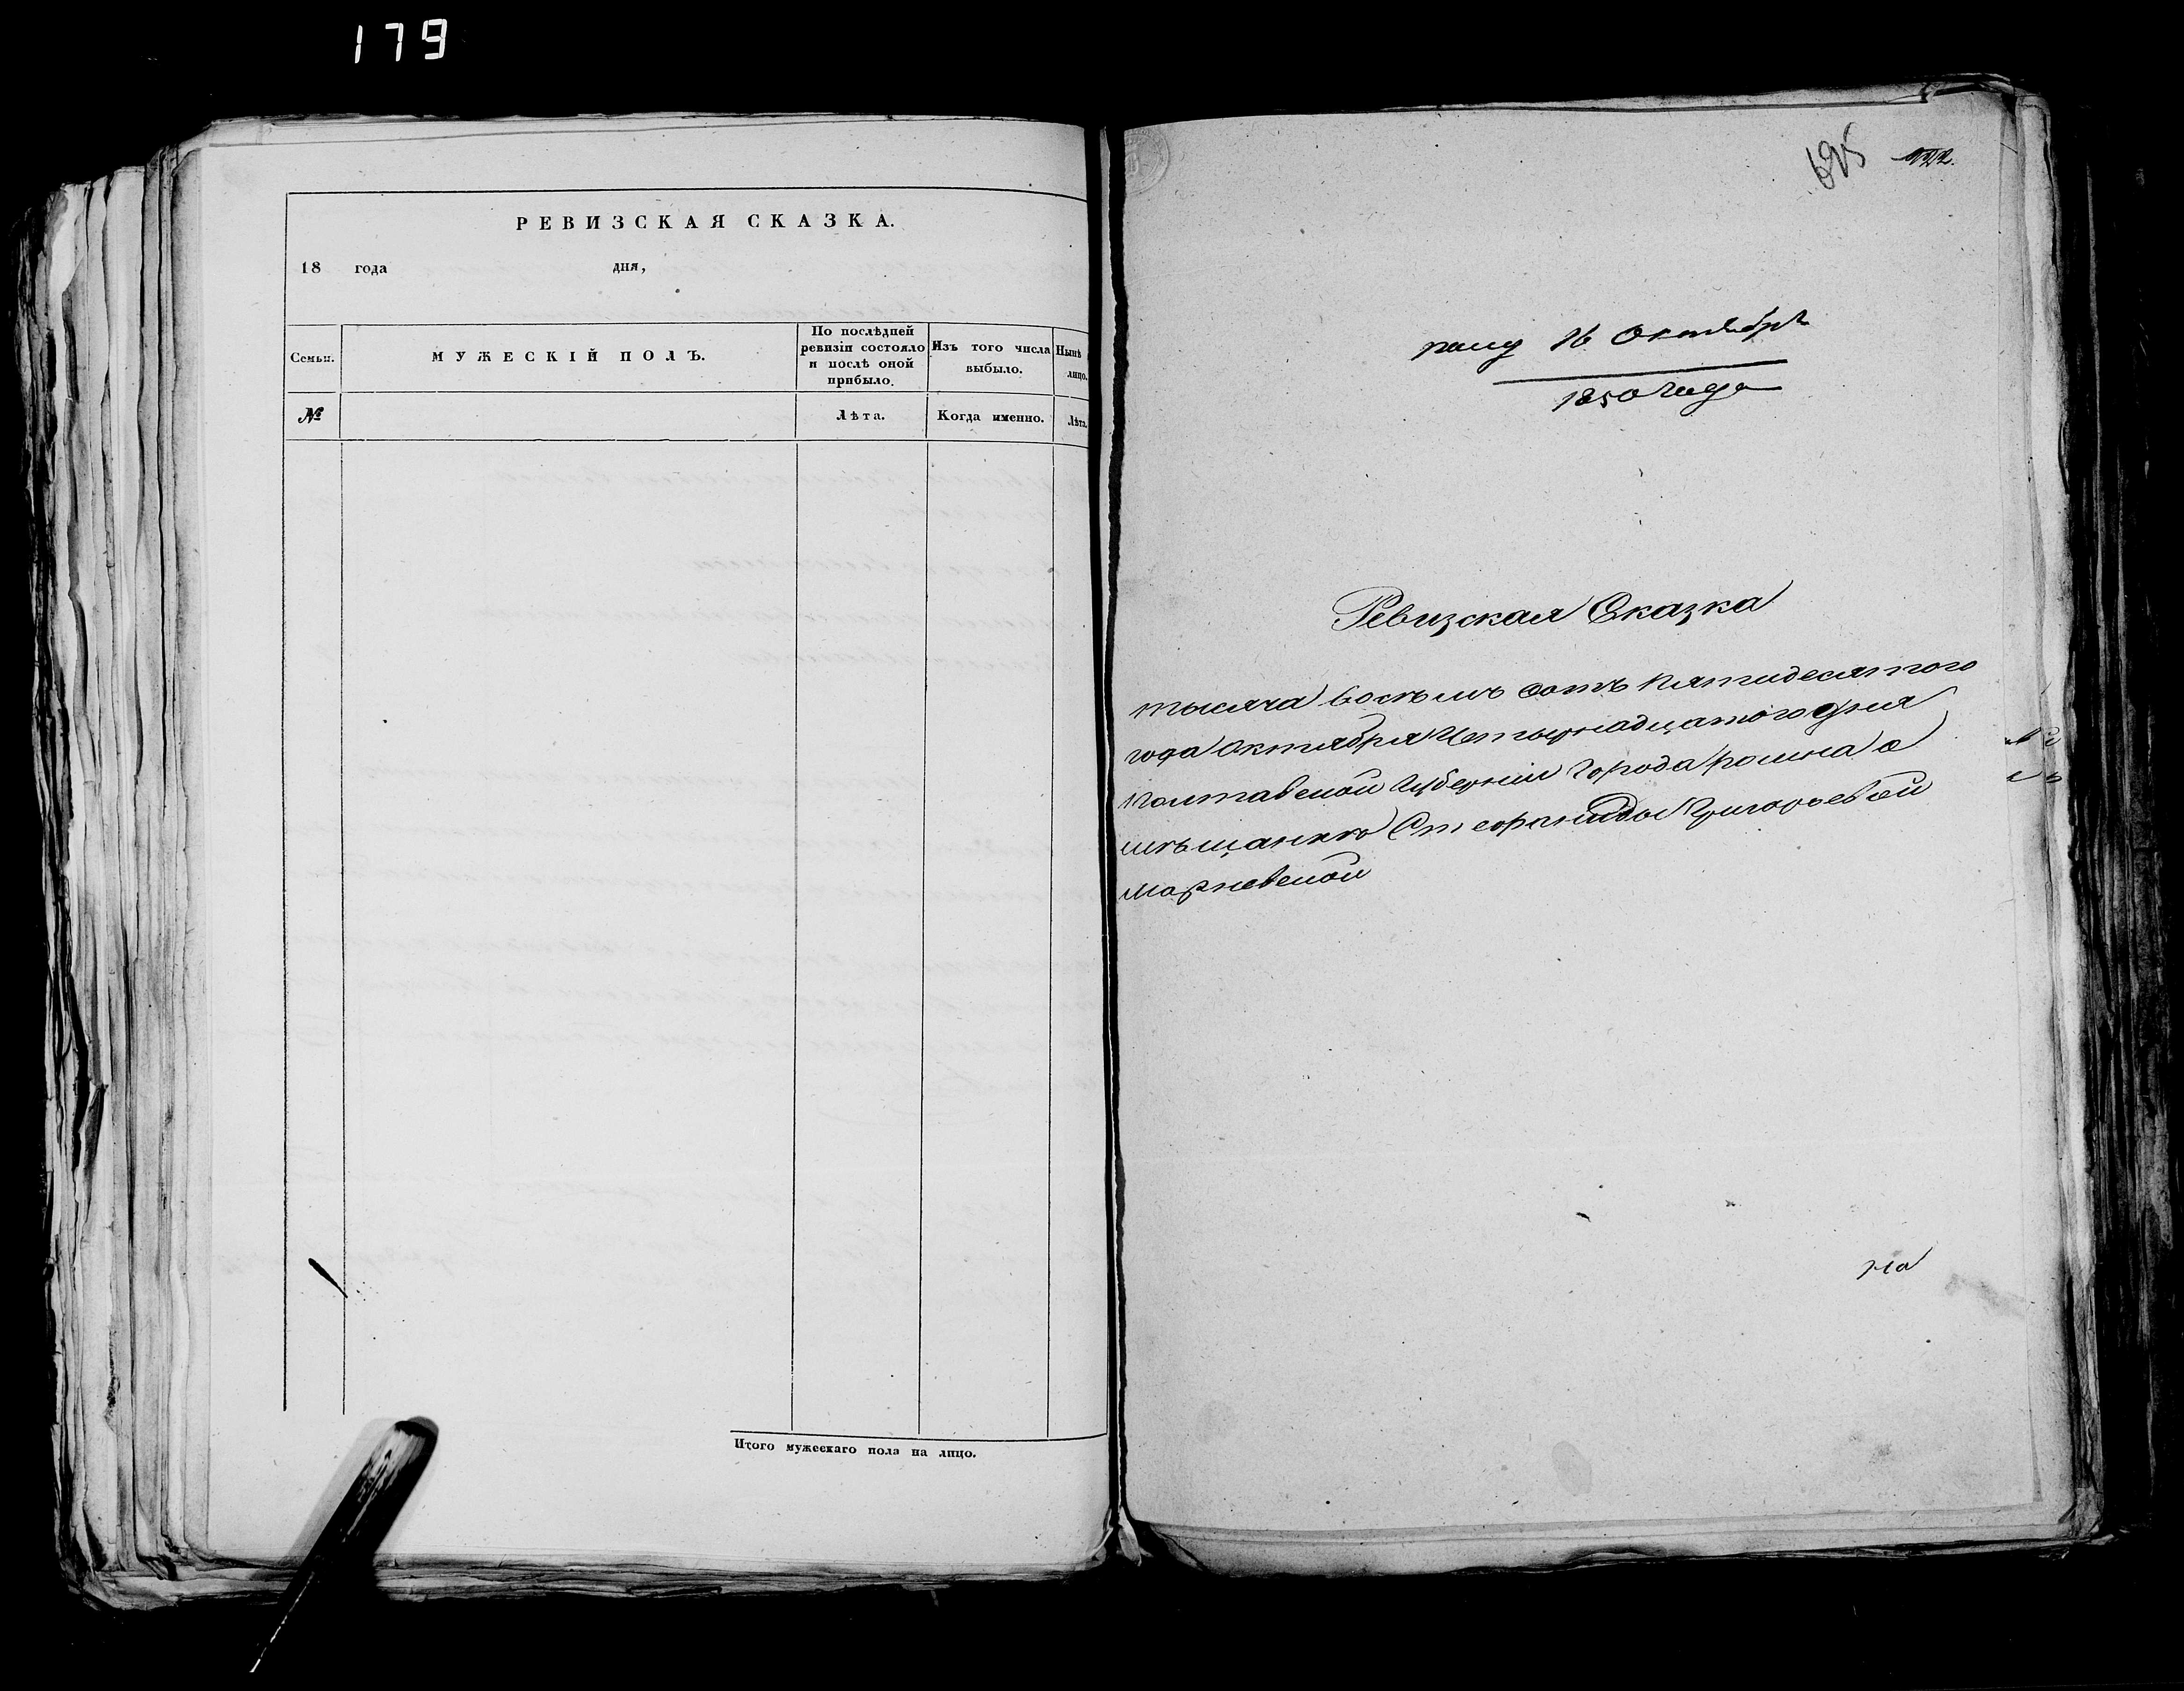 179
РЕВИЗСКАЯ СКАЗКА.
18 года дня,
Семьи.
МУЖЕСКІЙ ПОЛЪ.
По послѣдней
ревизіи состояло
и послѣ оной
прибыло.
Изъ того числа
выбыло.
Нынѣ
лицо.
№
Лѣта.
Когда именно.
Лѣта.
Итого мужескаго пола на лицо.
695
222.
16 Октября
1850 года
Ревизская Сказка
тысяча восѣмъ сотъ пятидесятого
года Октября Четырнадцатого дня
Полтавской Губерніи Города ромна о
мѣщанкѣ Григорьевой
на